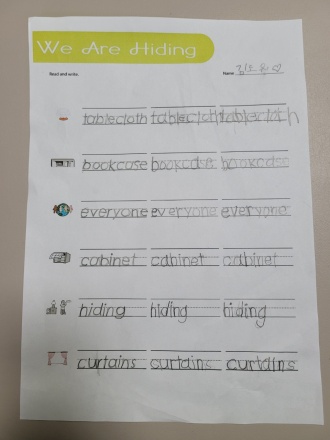 We Are Hiding
Read and write.
Name:
tablecloth tablecloth tablecloth
bookcase bookcase bookcase
everyone everyone everyone
cabinet cabinet cabinet
hiding hiding hiding
curtains curtains curtains